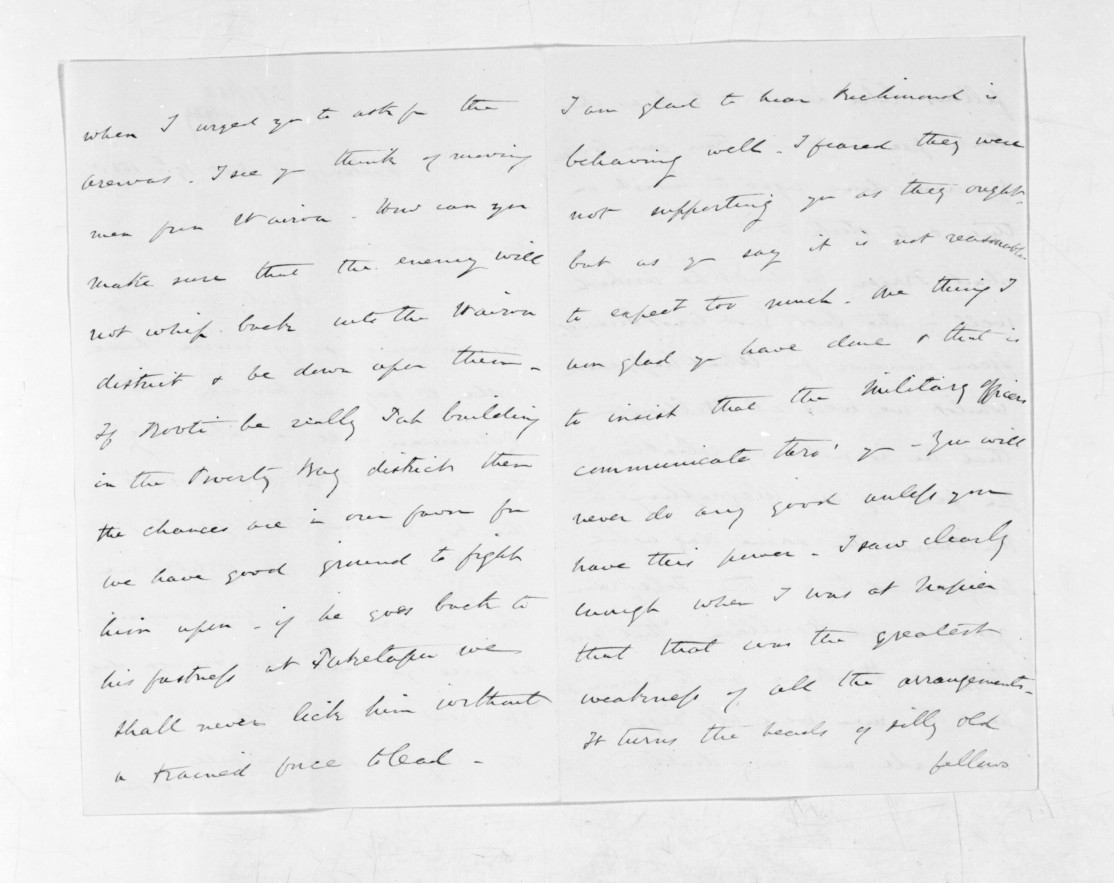 when I urged you to ask for the
arewas. I see you think of moving
men from Wairoa - How can you
make sure that the enemy will
not whip back into the Wairoa
district & be down upon them -
If Kooti be really Pah building
in the Poverty Bay district then
the chances are in our favor for
we have good ground to fight
him upon - if he goes back to
his fastness at Puketapu we
shall never lick him without
a trained force to lead -
I am glad to hear Richmond is
behaving well - I feared they were
not supporting you as they ought -
but as you say it is not reasonable
to expect too much - One thing I
am glad you have done & that is
to insist that the Military Officers
communicate thro' you - You will
never do any good unless you
have this power - I saw clearly
enough when I was at Napier
that that was the greatest
weakness of all the arrangements -
It turns the heads of silly old
fellows